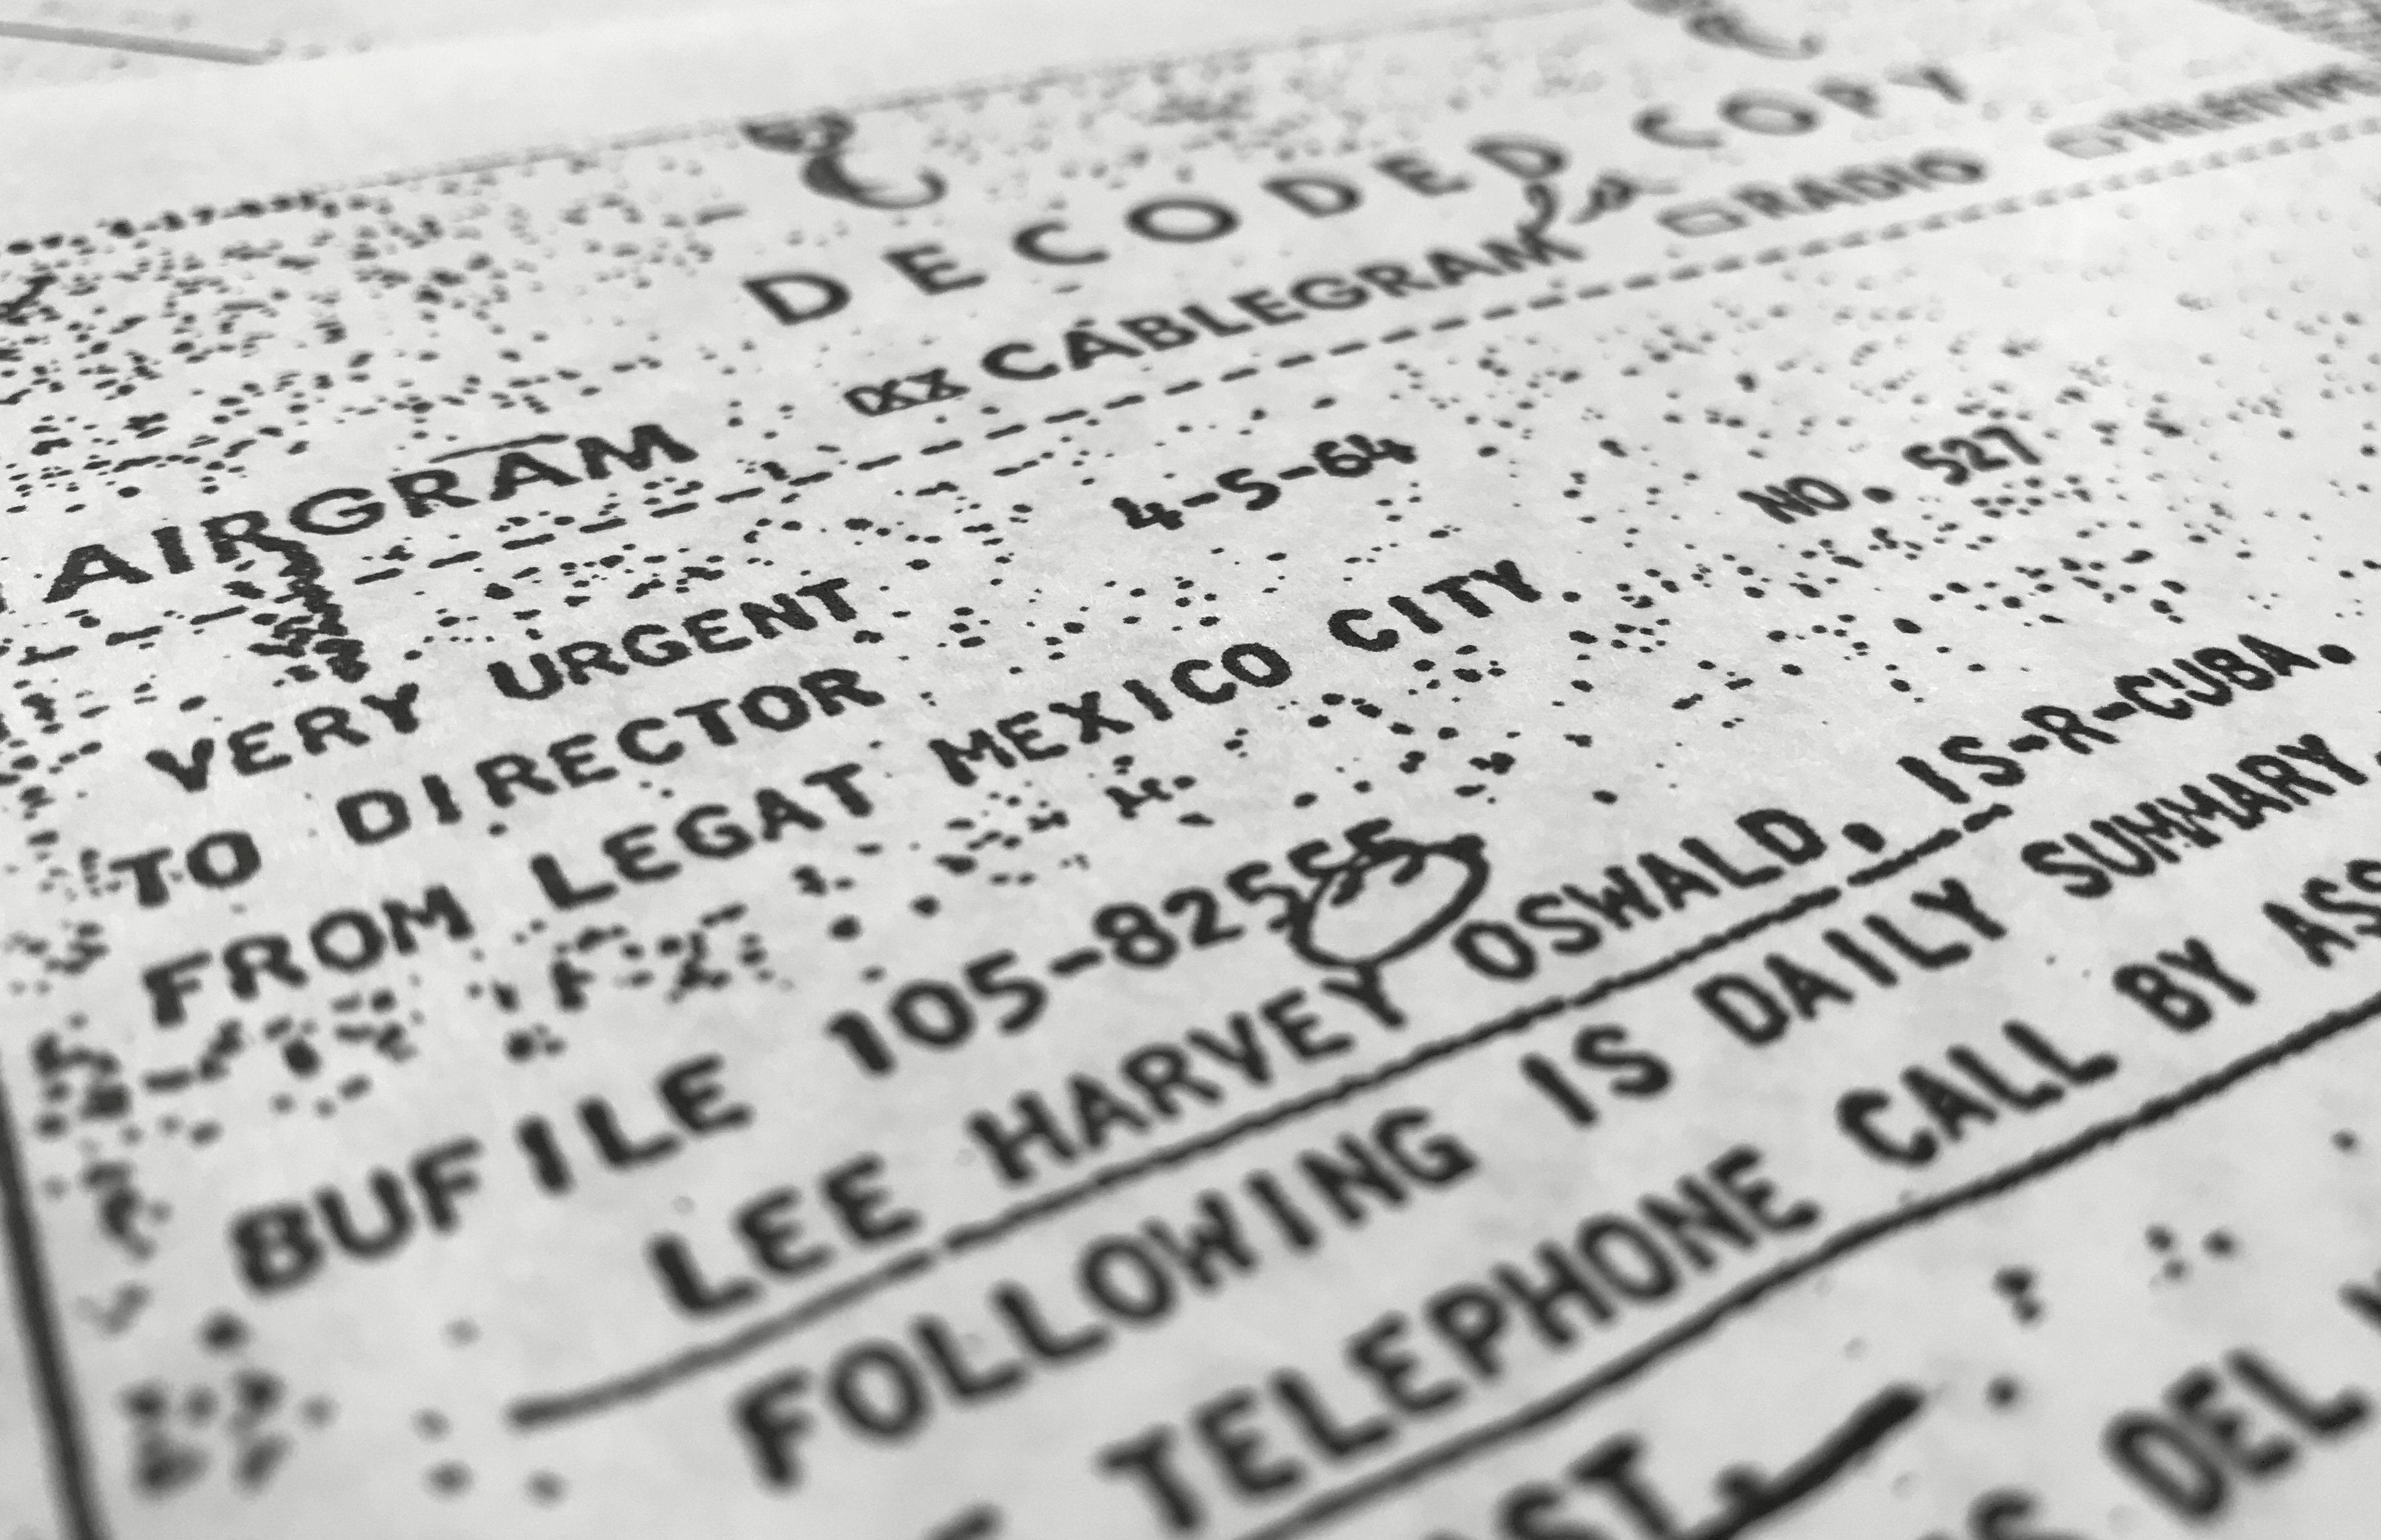 DECODED COPY
AIRGRAM CABLEGRAM RADIO TELETYPE
4-5-64 NO. 527
VERY URGENT
TO DIRECTOR
FROM LEGAT MEXICO CITY
BUFILE 105-82555
LEE HARVEY OSWALD, IS-R-CUBA.
FOLLOWING IS DAILY SUMMARY.
TELEPHONE CALL BY
DEL